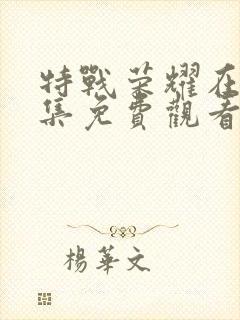 特戰榮耀在
集免費觀看
楊華文